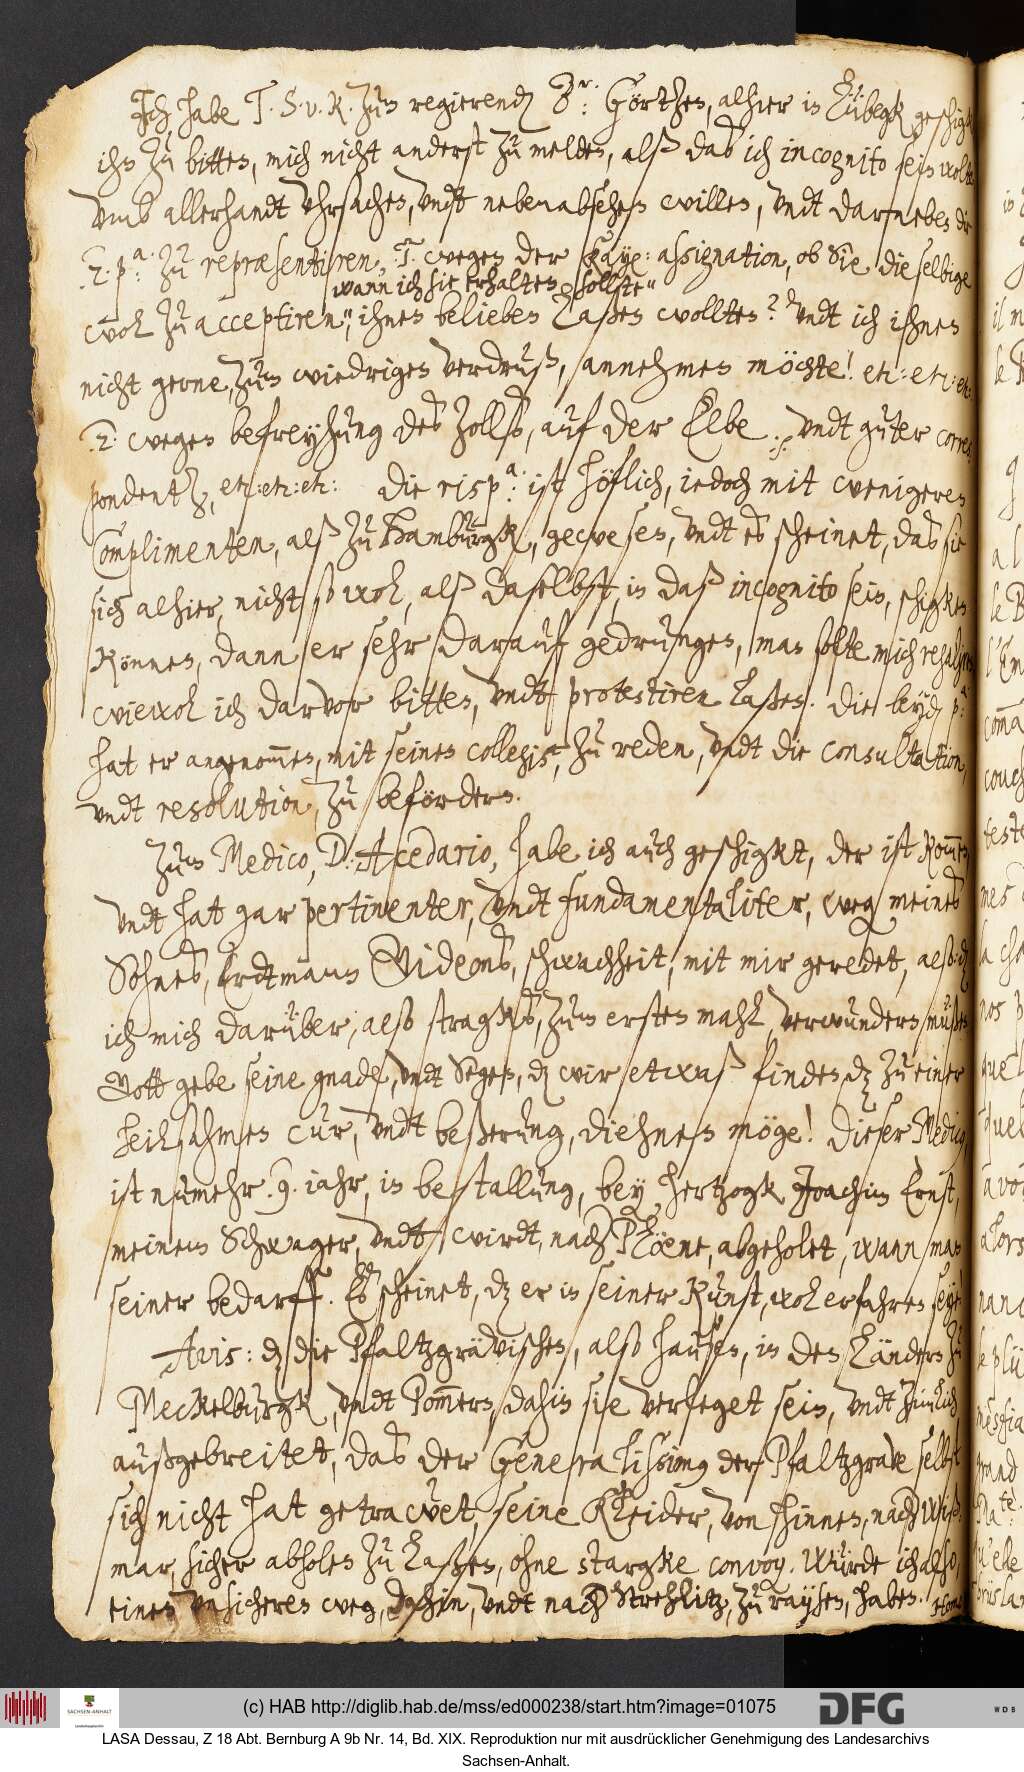 Ich habe T. S. v. R. zum regierenden B.r: Görtzen, alhier in Lübegk geschigkt
ihn zu bitten, mich nicht anderst zu melden, alß das ich incognito sein wolte
vmb allerhandt vhrsachen, vndt nebenabsehen willen, vndt darneben die
.2. p.a zu repræsentiren, T. wegen der Kay: assignation, ob Sie dieselbige
wann ich sie erhalten sollte"
wol zu acceptiren", ihnen belieben laßen wollten? Vndt ich ihnen
nicht gerne, zum wiedrigen verdruß, annehmen möchte! etc: etc: etc:
.2. wegen befreyhung des Zollß, auf der Elbe :/: vndt guter corres-
pondentz, etc: etc: etc: die risp.a: ist höflich, iedoch mit wenigeren
Complimenten, alß zu Hamburgk, gewesen, vndt es scheinet, das sie
sich alhier, nicht so wol, alß daselbst, in daß incognito sein, schigken
können, dann er sehr darauf gedrungen, man sollte mich
wiewol ich darvor bitten, vndt protestiren laßen. Die beyden p.a
hat er angenommen, mit seinen collegis, zu reden, vndt die consultation,
vndt resolution, zu beförderen.
Zum Medico, D: Acedario, habe ich auch geschigkt, der ist kommen
vndt hat gar pertinenter, vndt fundamentaliter, wegen meines
Sohnes, Erdtmann Gideons, schwachheit, mit mir geredet, also daß
ich mich darüber, also stragks, zum ersten mahl, verwundern müßen
Gott gebe seine gnade, vndt Segen, daß wir etwaß finden daß zu einer
heilsahmen cur, vndt beßerung, diehnen möge! Dieser Medicus,
ist numehr .9. iahr, in bestallung, bey hertzogk Joachim Ernst,
meinem Schwager, vndt wirdt, nach Plöene, abgeholet, wann man
seiner bedarff. Es scheinet, daß er in seiner Kunst, wol erfahren seye.
Avis: daß die Pfaltzgrävischen, also hausen, in den Länderen zu
Meckelburgk, vndt Pommern, dahin sie verleget sein, vndt zimlich
außgebreitet, das der Generalissimus der Pfaltzgrave selbst
sich nicht hat getrawet, seine Kleider, von hinnen, nach Wiß-
mar, sicher abholen zu laßen, ohne stargke convoy. Würde ich also,
einen vnsicheren weg, dahin, vndt nach Strehlitz, zu raysen, haben.
(c) HAB http://diglib.hab.de/mss/ed000238/start.htm?image=01075
SACHSEN-ANHALT
DFG
WDB
LASA Dessau, Z 18 Abt. Bernburg A 9b Nr. 14, Bd. XIX. Reproduktion nur mit ausdrücklicher Genehmigung des Landesarchivs
Sachsen-Anhalt.